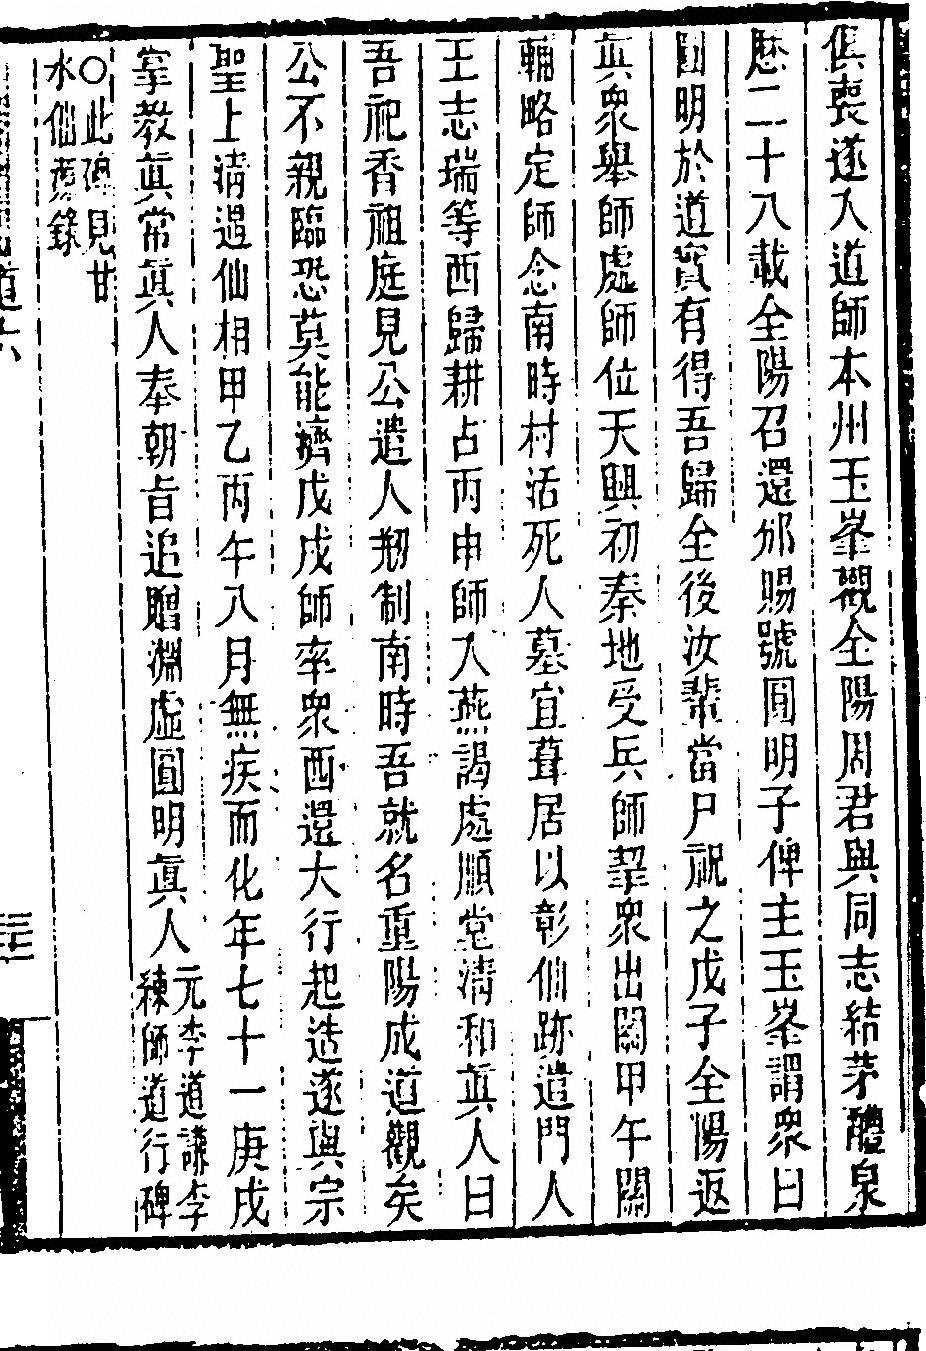 俱喪遂入道師本州玉峯觀全陽周君與同志結茅醴泉
歷二十八載全陽召還邠賜號圓明子俾主玉峯謂衆曰
圓明於道實有得吾歸全後汝輩當尸祝之戊子全陽返
眞衆舉師處師位天興初秦地受兵師挈衆出關甲午關
輔略定師念南時村活死人墓宜葺居以彰仙跡遣門人
王志瑞等西歸耕占丙申師入燕謁處順堂清和眞人曰
吾祀香祖庭見公遣人剏制南時吾就名重陽成道觀矣
公不親臨恐莫能濟戊戌師率衆西還大行起造遂與宗
聖上清遇仙相甲乙丙午八月無疾而化年七十一庚戌
掌教眞常眞人奉朝旨追贈淵虛圓明眞人
元李道謙李
練師道行碑
〇此碑見甘
水仙源錄
道六
三三